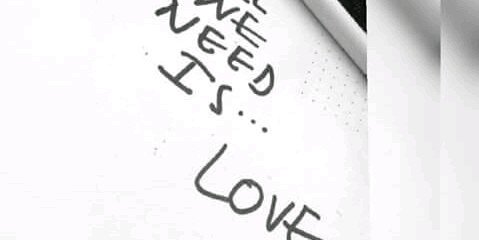 WE
NEED
IS...
LOVE